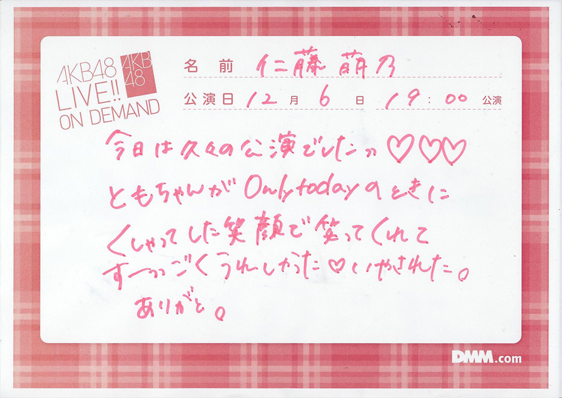 AKB48
LIVE!!
ON DEMAND
AKB
48
名前 仁藤萌乃
公演日 12月6日 19:00 公演
今日は久々の公演でしたっ♡♡♡
ともちゃんがOnly todayのときに
くしゃってした笑顔で笑ってくれて
すーっっごくうれしかった♡いやされた。
ありがと。
DMM.com